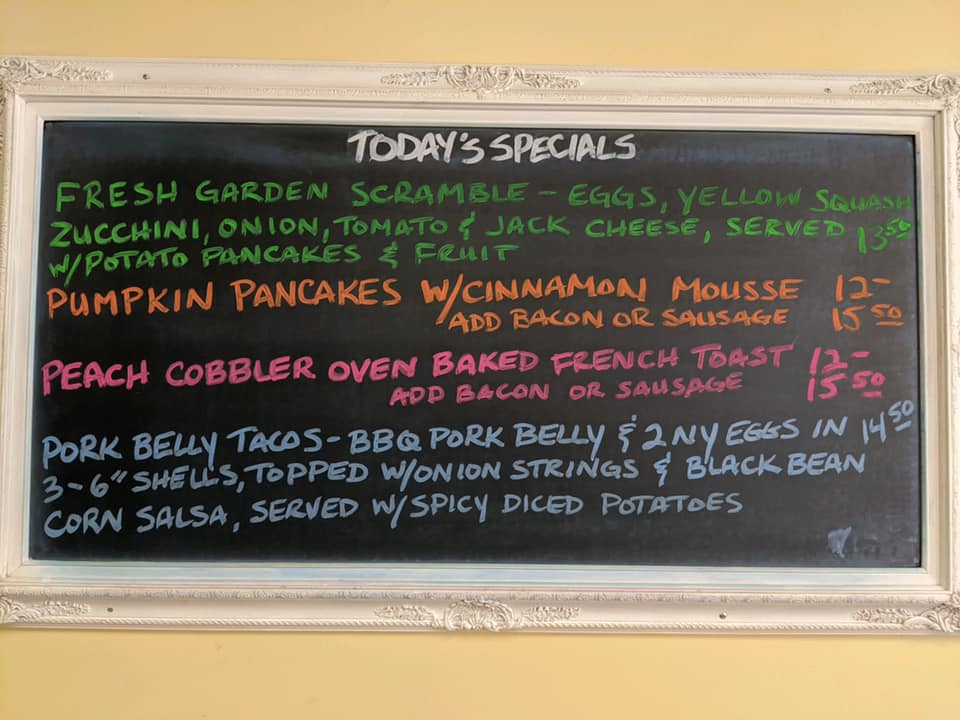 TODAY'S SPECIALS
FRESH GARDEN SCRAMBLE - EGGS, YELLOW SQUASH
ZUCCHINI, ONION, TOMATO & JACK CHEESE, SERVED 13.50
W/POTATO PANCAKES & FRUIT
PUMPKIN PANCAKES W/CINNAMON MOUSSE 12-
ADD BACON OR SAUSAGE 15.50
PEACH COBBLER OVEN BAKED FRENCH TOAST 12-
ADD BACON OR SAUSAGE 15.50
PORK BELLY TACOS - BBQ PORK BELLY & 2 NY EGGS IN 14.50
3-6" SHELLS, TOPPED W/ONION STRINGS & BLACK BEAN
CORN SALSA, SERVED W/SPICY DICED POTATOES